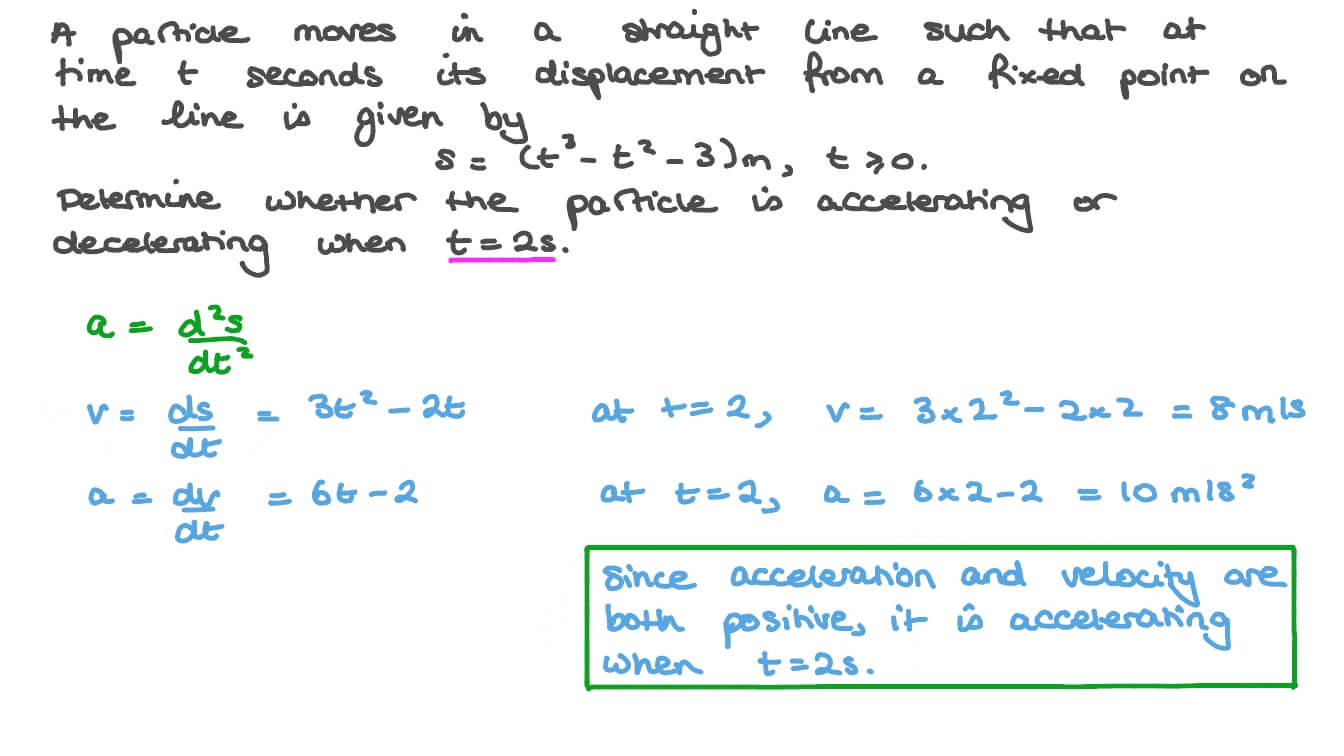 A particle moves in a straight line such that at
time t seconds its displacement from a fixed point on
the line is given by
s = (t³ - t² - 3)m, t ⩾ 0.
Determine whether the particle is accelerating or
decelerating when t = 2s.
a = d²s/dt²
v = ds/dt = 3t² - 2t at t = 2, v = 3×2² - 2×2 = 8 m/s
a = dv/dt = 6t - 2 at t = 2, a = 6×2 - 2 = 10 m/s²
Since acceleration and velocity are
both positive, it is accelerating
when t = 2s.